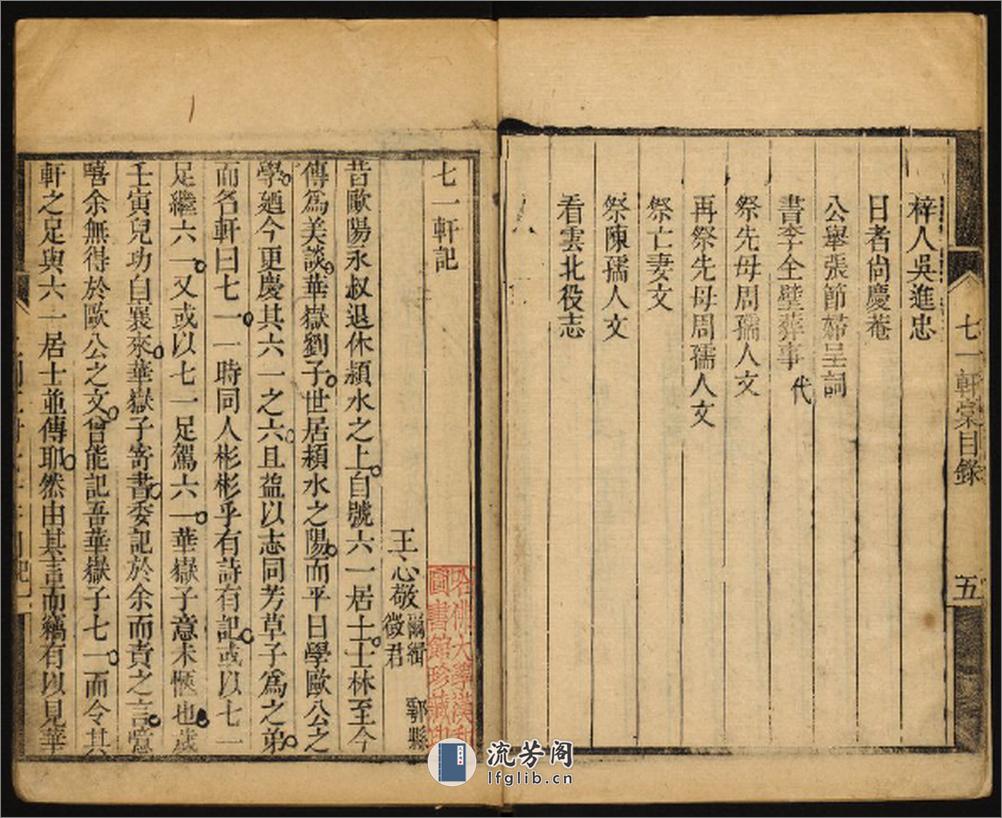 梓人吳進忠
日者尙慶菴
公舉張節婦呈詞
書李全璧葬事代
祭先母周孺人文
再祭先母周孺人文
祭亡妻文
祭陳孺人文
看雲北役志
七一軒稾目錄
五
七一軒記
王心敬爾緝 鄠縣
徵君
昔歐陽永叔退休潁水之上自號六一居士士林至今
傳爲美談華嶽劉子世居潁水之陽而平日學歐公之
學廼今更慶其六一之六且益以志同芳草子爲之弟
而名軒曰七一一時同人彬彬乎有詩有記或以七一
足繼六一又或以七一足駕六一華嶽子意未愜也歲
壬寅兒功自襄來華嶽子寄書委記於余而責之言噫
嘻余無得於歐公之文曾能記吾華嶽子七一而令其
軒之足與六一居士並傳耶然由其言而竊有以見華
哈佛大學漢和
圖書館珍藏印
流芳阁
lfglib.cn